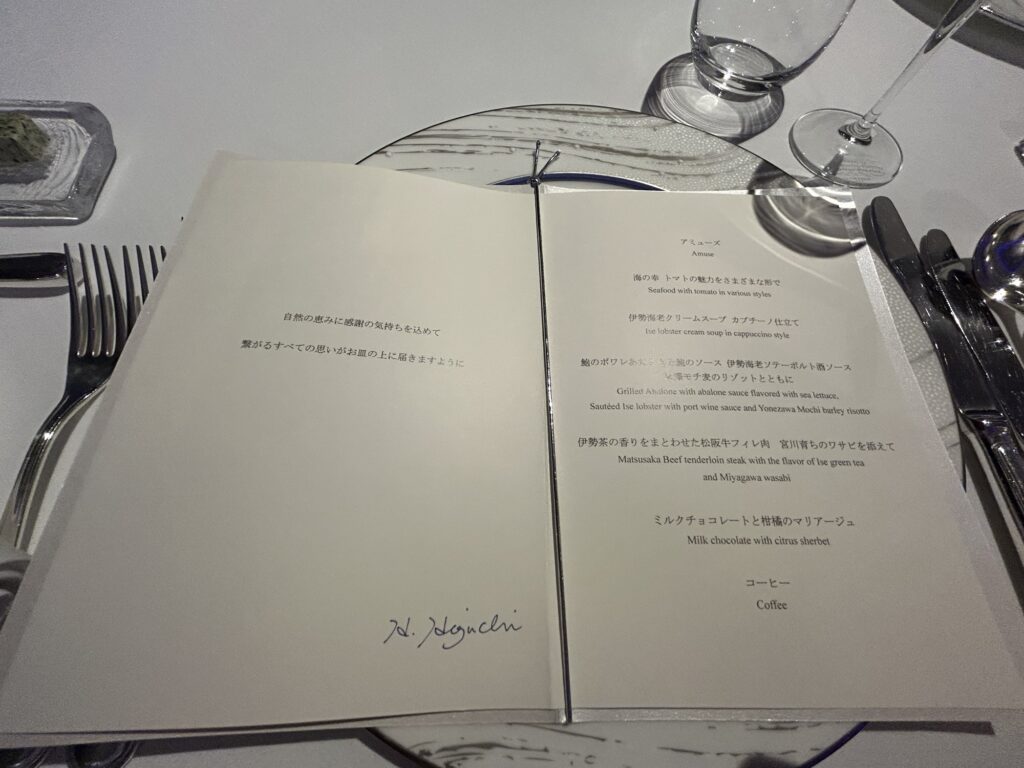 自然の恵みに感謝の気持ちを込めて
繋がるすべての思いがお皿の上に届きますように
H. Higuchi
アミューズ
Amuse
海の幸 トマトの魅力をさまざまな形で
Seafood with tomato in various styles
伊勢海老クリームスープ カプチーノ仕立て
Ise lobster cream soup in cappuccino style
鮑のポワレあお と鮑のソース 伊勢海老ソテーポルト酒ソース
モチ麦のリゾットとともに
Grilled Abalone with abalone sauce flavored with sea lettuce,
Sautéed Ise lobster with port wine sauce and Yonezawa Mochi barley risotto
伊勢茶の香りをまとわせた松阪牛フィレ肉 宮川育ちのワサビを添えて
Matsusaka Beef tenderloin steak with the flavor of Ise green tea
and Miyagawa wasabi
ミルクチョコレートと柑橘のマリアージュ
Milk chocolate with citrus sherbet
コーヒー
Coffee